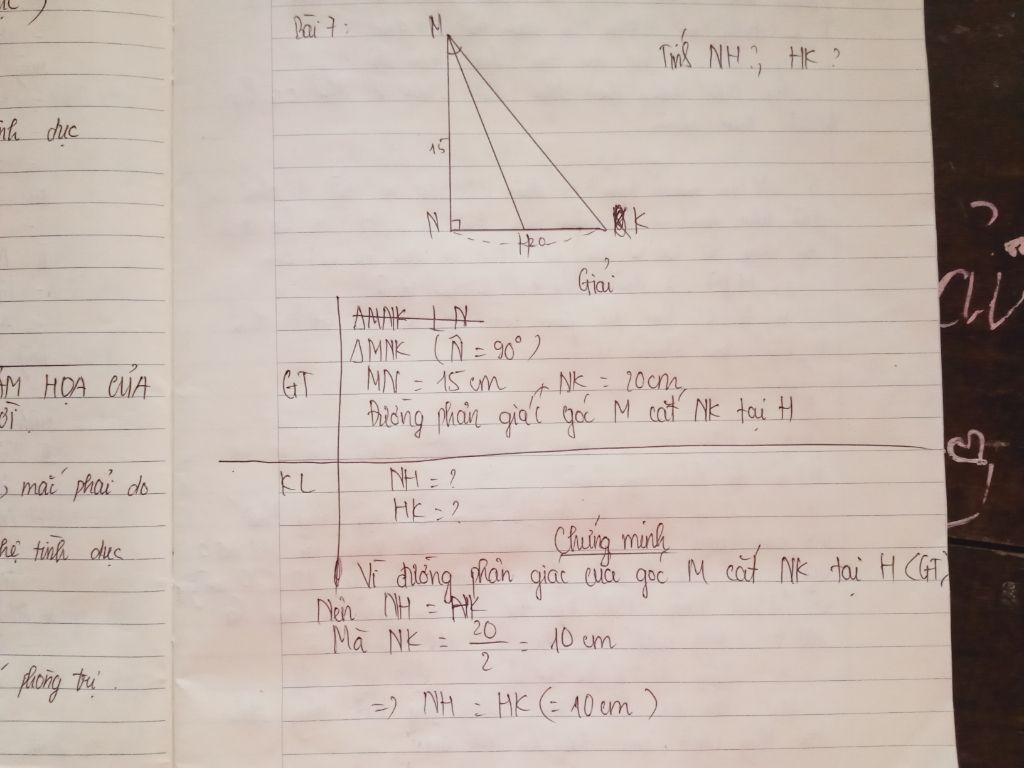 nh dục
ẢM HỌA CỦA
mắc phải do
hệ tình dục
phòng trị.
Bài 7:
M
Tính NH?; HK?
15
N
K
Giải
ΔMNK ⊥ N
ΔMNK (N̂ = 90°)
GT MN = 15cm, NK = 20cm,
Đường phân giác góc M cắt NK tại H
KL NH = ?
HK = ?
Chứng minh
Vì đường phân giác của góc M cắt NK tại H (GT)
Nên NH = HK
Mà NK = 20/2 = 10 cm
=> NH = HK (= 10cm)